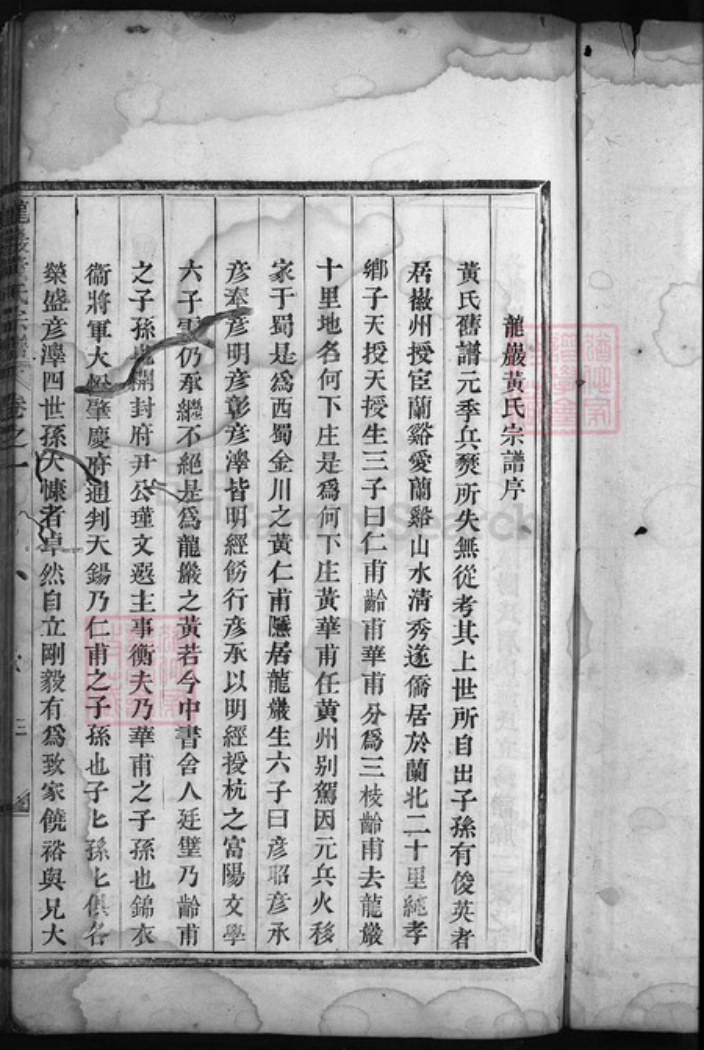 龍巖黃氏宗譜序
黃氏舊譜元季兵燹所失無從考其上世所自出子孫有俊英者
居徽州授宦蘭谿愛蘭谿山水清秀遂僑居於蘭北二十里純孝
鄉子天授天授生三子曰仁甫齡甫華甫分為三枝齡甫去龍巖
十里地名何下庄是為何下庄黃華甫任黃州別駕因元兵火移
家于蜀是為西蜀金川之黃仁甫隱居龍巖生六子曰彥昭彥承
彥奉彥明彥彰彥滓皆明經飭行彥承以明經授杭之富陽文學
六子仍承繼不絕是為龍巖之黃若今中書舍人廷璧乃齡甫
之子孫也開封府尹公瑾文選主事衡夫乃華甫之子孫也錦衣
衞將軍大肇慶府通判天錫乃仁甫之子孫也子匕孫匕俱各
榮盛彥滓四世孫大慷者卓然自立剛毅有為致家饒裕與兄大
龍巖黃氏宗譜 卷之一 序 三
FamilySearch